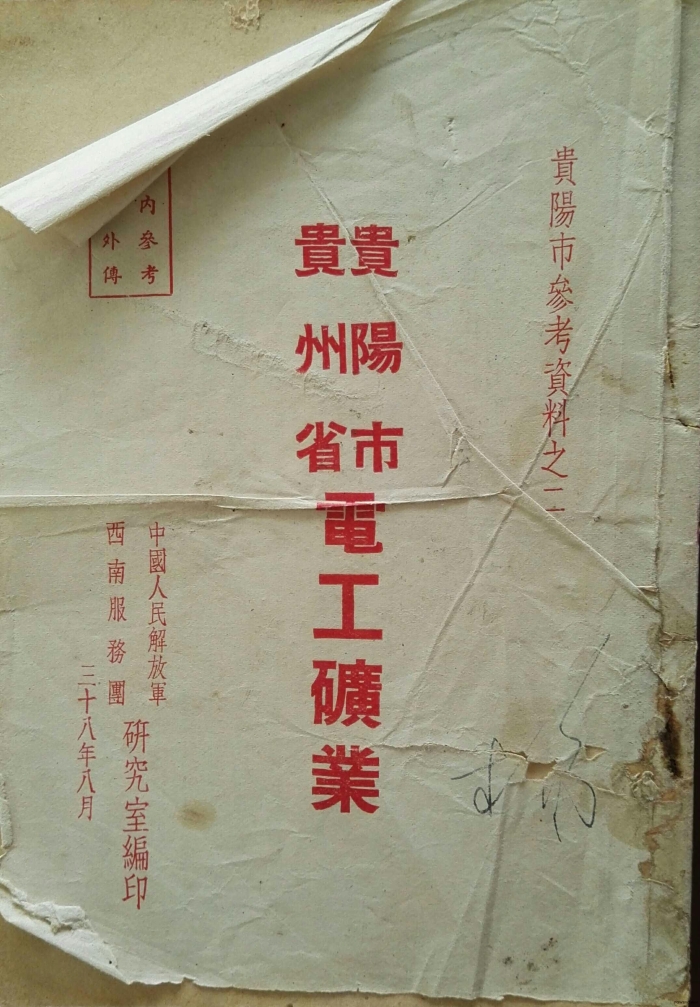 貴陽市參考資料之二
貴陽市
貴州省
電工礦業
內參考
外傳
中國人民解放軍
西南服務團
研究室編印
三十八年八月